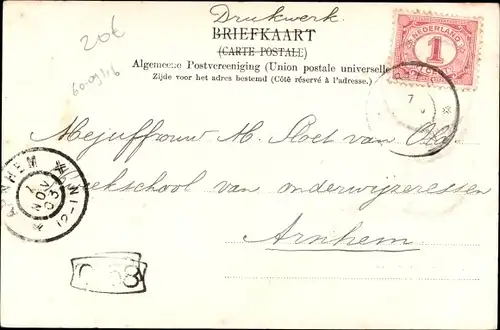 Drukwerk.
20€
60-09116
BRIEFKAART
(CARTE POSTALE)
Algemeene Postvereeniging (Union postale universelle)
Zijde voor het adres bestemd (Côté réservé à l'adresse.)
NEDERLAND
1
7
Mejuffrouw M. Sloet van Old
Kweekschool van onderwijzeressen
Arnhem.
ARNHEM
7 NOV 03
12-1N